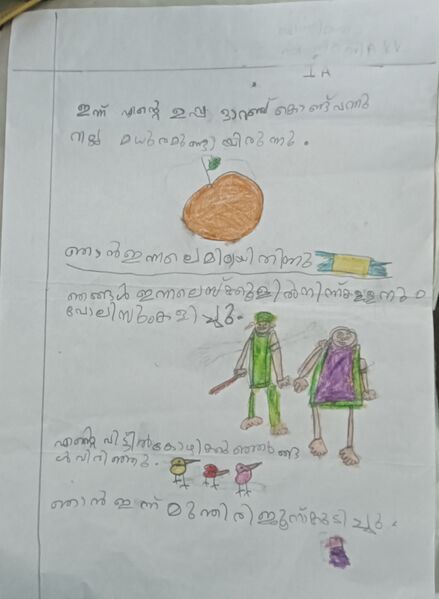 I A
ഇന്ന് എന്റെ ഉപ്പ ഓറഞ്ച് കൊണ്ട് വന്നു
നല്ല മധുരമുണ്ടായിരുന്നു.
ഞാൻ ഇന്നലെ മിഠായി തിന്നു
ഞങ്ങൾ ഇന്നലെ സ്കൂളിൽ നിന്ന് കള്ളനും
പോലിസും കളിച്ചു.
എന്റെ വീട്ടിൽ കോഴി
വിരിഞ്ഞു.
ഞാൻ ഇന്ന് മുന്തിരി ജ്യൂസ് കുടിച്ചു.